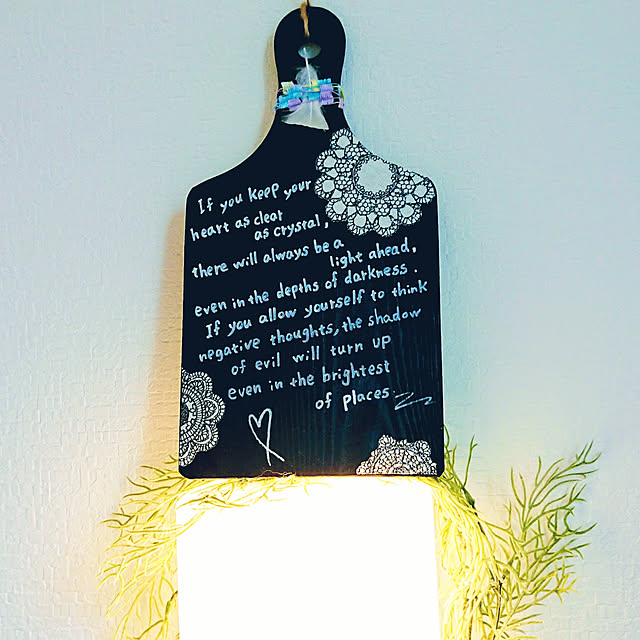 If you keep your
heart as clear
as crystal,
there will always be a
light ahead,
even in the depths of darkness.
If you allow yourself to think
negative thoughts, the shadow
of evil will turn up
even in the brightest
of places.